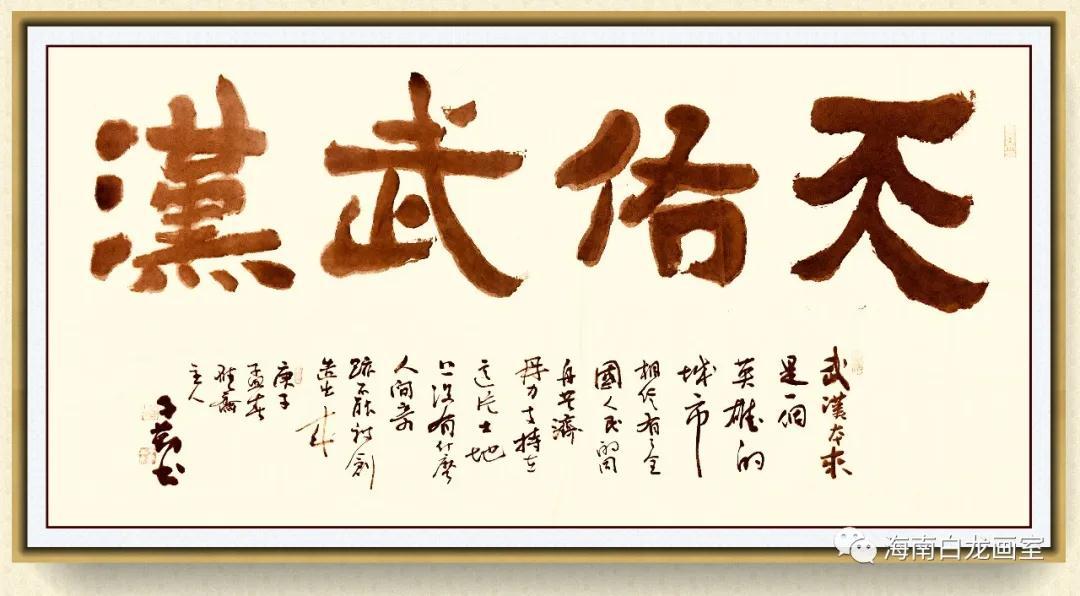 天佑武漢
武漢本來
是一個
英雄的
城市
相信有全
國人民的同
舟共濟
毋力支持在
這片土地
上沒有什麼
人間奇
跡不能被創
造出來
庚子
孟春
主人
海南白龙画室